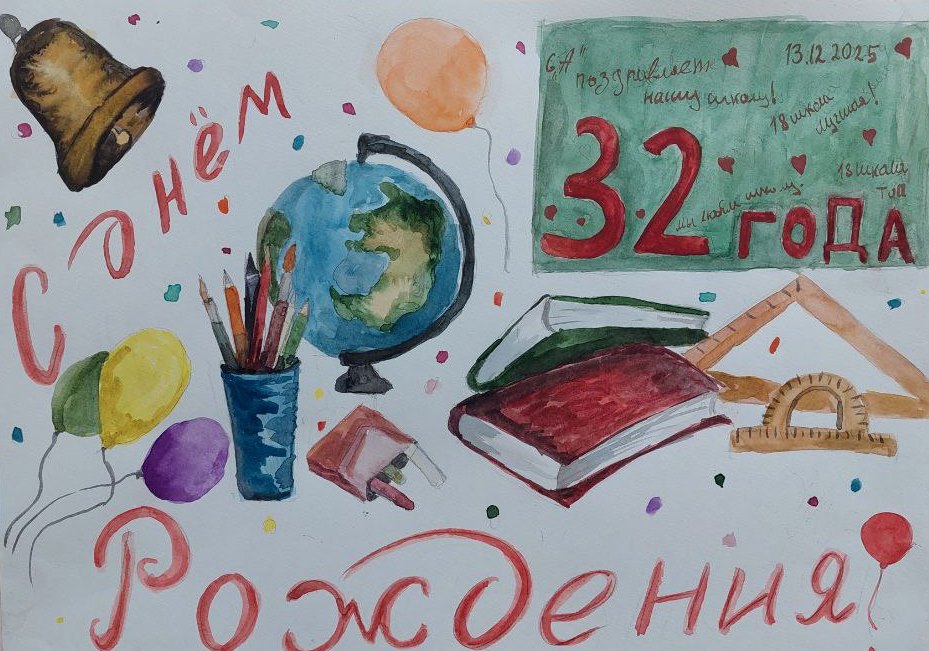 С днём
Рождения
"6А"
поздравляет
нашу школу!
13.12.2025
18 школа
лучшая!
32 ГОДА
мы любим школу
18 школа
топ